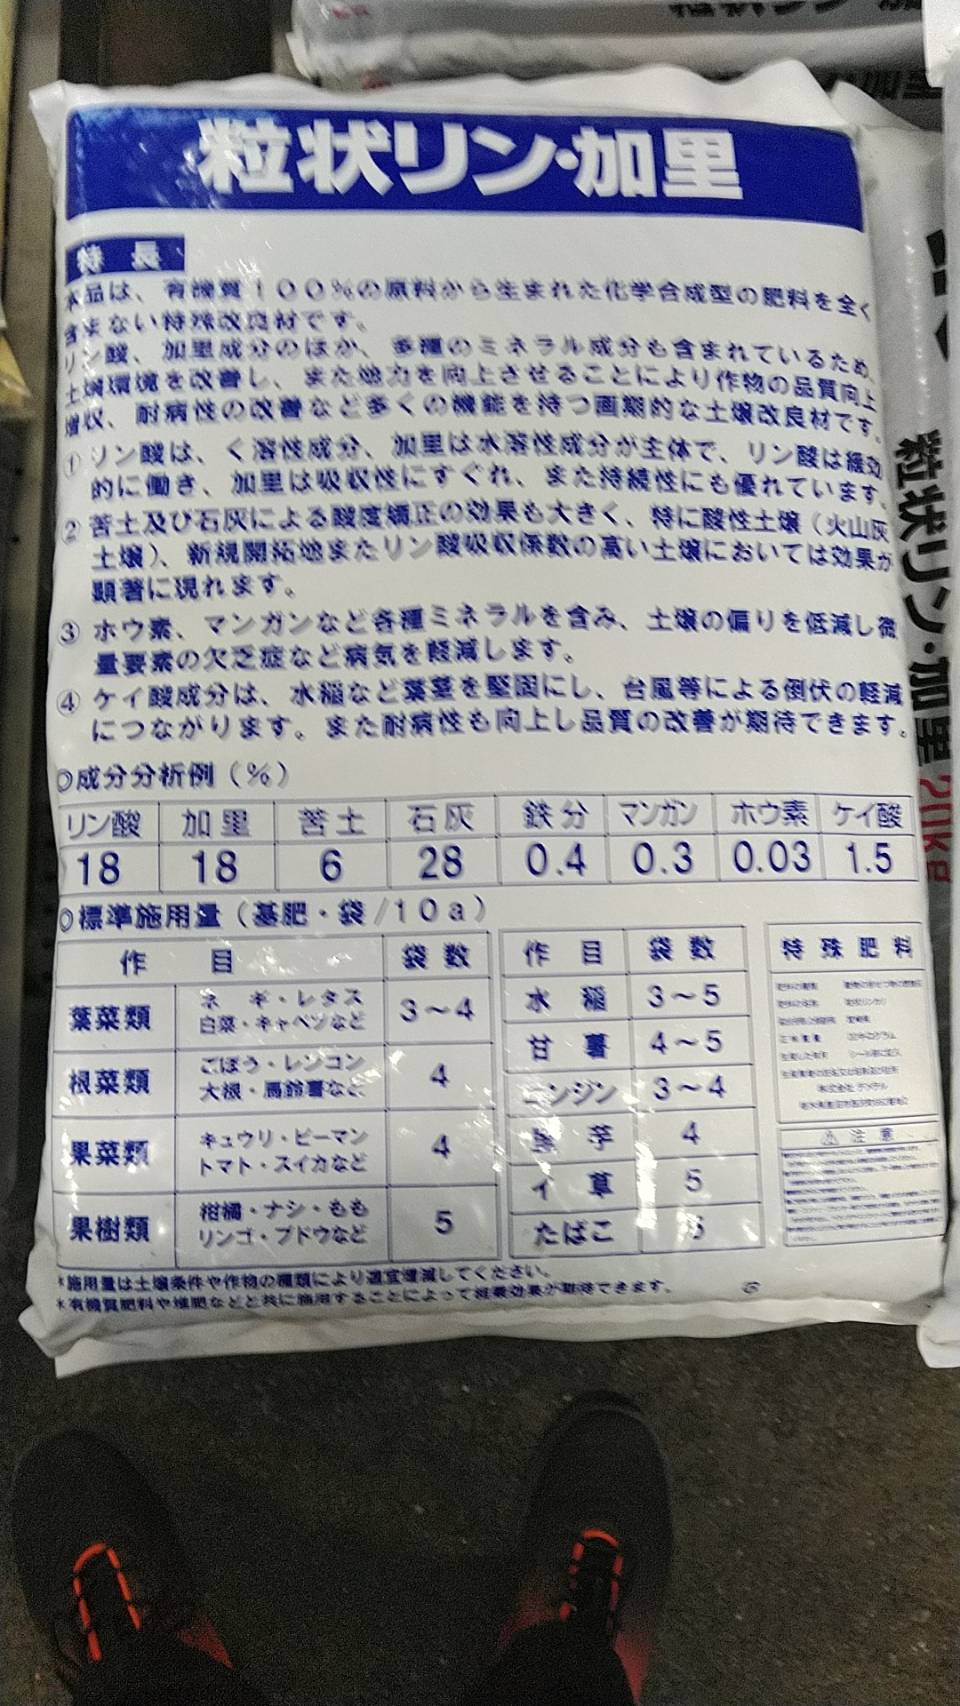 粒状リン・加里
特長
本品は、有機質100%の原料から生まれた化学合成型の肥料を全く
含まない特殊改良材です。
リン酸、加里成分のほか、多種のミネラル成分も含まれているため、
土壌環境を改善し、また地力を向上させることにより作物の品質向上
増収、耐病性の改善など多くの機能を持つ画期的な土壌改良材です。
① リン酸は、く溶性成分、加里は水溶性成分が主体で、リン酸は緩効
的に働き、加里は吸収性にすぐれ、また持続性にも優れています。
② 苦土及び石灰による酸度矯正の効果も大きく、特に酸性土壌(火山灰
土壌)、新規開拓地またリン酸吸収係数の高い土壌においては効果が
顕著に現れます。
③ ホウ素、マンガンなど各種ミネラルを含み、土壌の偏りを低減し微
量要素の欠乏症など病気を軽減します。
④ ケイ酸成分は、水稲など葉茎を堅固にし、台風等による倒伏の軽減
につながります。また耐病性も向上し品質の改善が期待できます。
◎成分分析例(%)
リン酸 加里 苦土 石灰 鉄分 マンガン ホウ素 ケイ酸
18 18 6 28 0.4 0.3 0.03 1.5
◎標準施用量(基肥・袋/10a)
作目 袋数
葉菜類 ネギ・レタス 白菜・キャベツなど 3～4
根菜類 ごぼう・レンコン 大根・馬鈴薯など 4
果菜類 キュウリ・ピーマン トマト・スイカなど 4
果樹類 柑橘・ナシ・もも リンゴ・ブドウなど 5
作目 袋数
水稲 3～5
甘薯 4～5
ニンジン 3～4
里芋 4
イ草 5
たばこ
特殊肥料
⚠ 注意
*施用量は土壌条件や作物の種類により適宜増減してください。
*有機質肥料や堆肥などと共に施用することによって相乗効果が期待できます。
粒状リン・加里 20kg